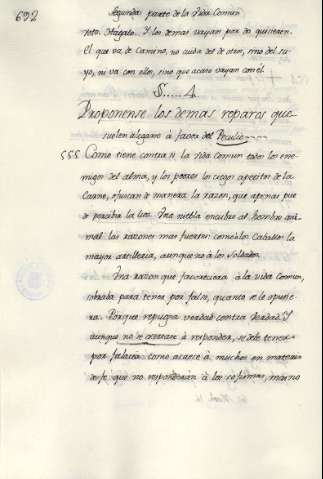 692
Segunda parte de la Vida Comun
voto. Hagalo. Y los demas vayan por do quisieren.
El que va de Camino, no cuida del de otro, sino del su
yo, ni va con ellos, sino que acaso vayan con el.
§.....4.
Proponense los demas reparos que
suelen alegarse à favor del Peculio
555 Como tiene contra si la vida comun todos los ene
migos del alma, y los pobres los ciegos apetitos de la
Carne, ofuscan de manera la razon, que apenas pue
de percibir la luz. Una niebla encubre al hombre ani
mal las razones mas fuertes: como à los Caballos la
mayor artilleria, aunque no à los soldados.
Una razon que favoreciera à la vida Comun,
bastaba para tener por falso, quanto se le opusie
ra. Porque repugna verdad contra Verdad. Y
aunque no se acertare à responder, se debe tener
por falacia: como acaece à muchos en materias
de fe, que no responderàn à los sofismas, mas no